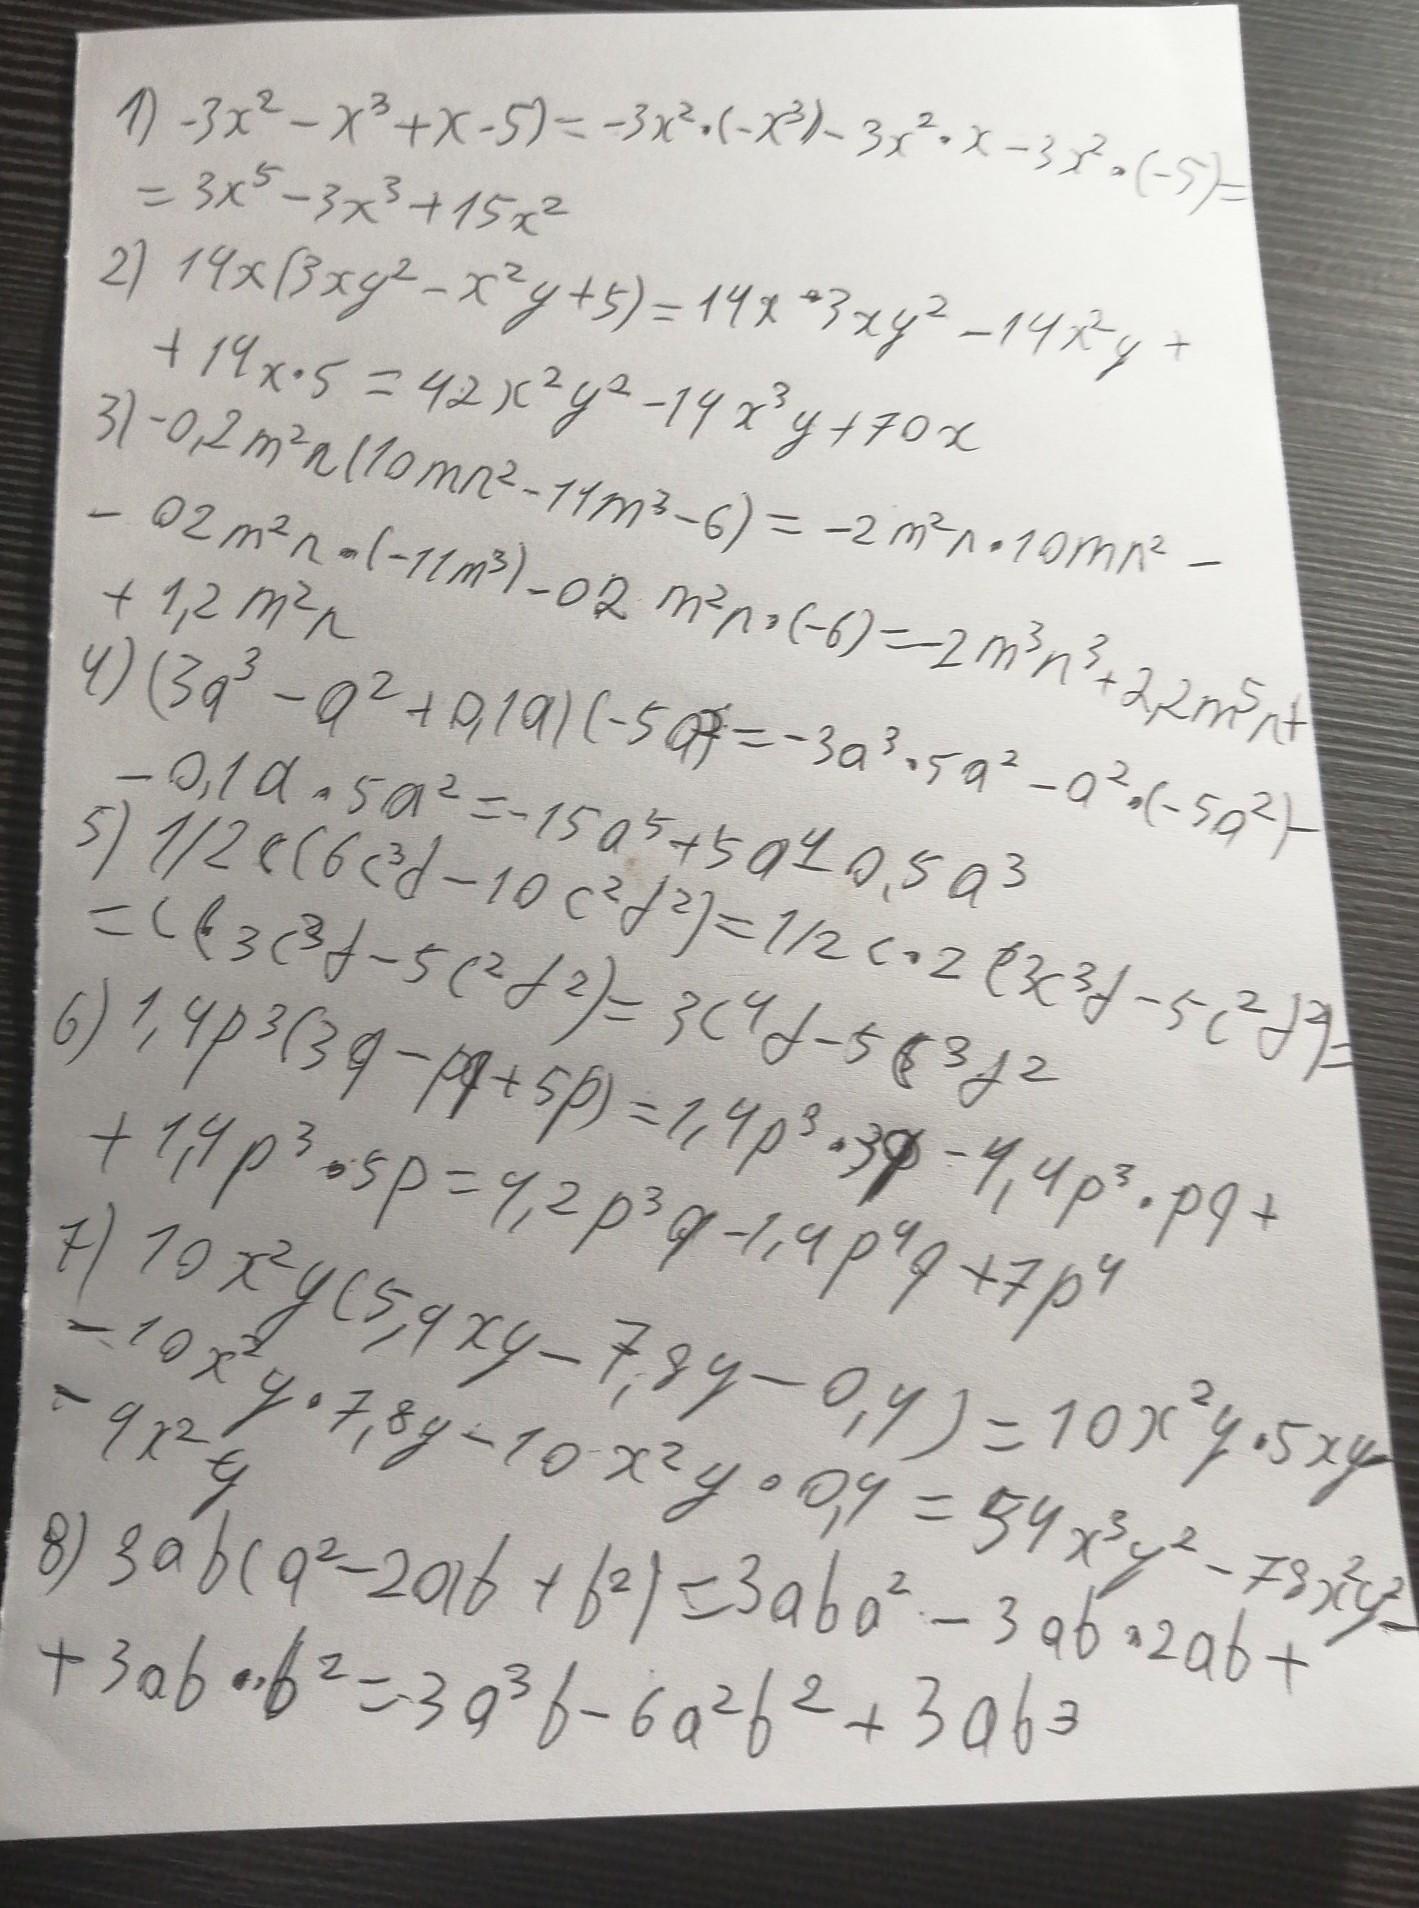 1) -3x² - x³ + x - 5) = -3x² · (-x³) - 3x² · x - 3x² · (-5) =
= 3x⁵ - 3x³ + 15x²
2) 14x(3xy² - x²y + 5) = 14x · 3xy² - 14x²y +
+ 14x · 5 = 42x²y² - 14x³y + 70x
3) -0,2m²n(10mn² - 11m³ - 6) = -2m²n · 10mn² -
- 02m²n · (-11m³) - 02 m²n · (-6) = -2m³n³ + 2,2m⁵n +
+ 1,2m²n
4) (3a³ - a² + 0,1a)(-5a²) = -3a³ · 5a² - a² · (-5a²) -
- 0,1a · 5a² = -15a⁵ + 5a⁴ - 0,5a³
5) 1/2c(6c³d - 10c²d²) = 1/2c · 2(3c³d - 5c²d²) =
= c(3c³d - 5c²d²) = 3c⁴d - 5c³d²
6) 1,4p³(3q - pq + 5p) = 1,4p³ · 3q - 1,4p³ · pq +
+ 1,4p³ · 5p = 4,2p³q - 1,4p⁴q + 7p⁴
7) 10x²y(5,4xy - 7,8y - 0,4) = 10x²y · 5xy -
- 10x²y · 7,8y - 10x²y · 0,4 = 54x³y² - 78x²y² -
- 4x²y
8) 3ab(a² - 2ab + b²) = 3aba² - 3ab · 2ab +
+ 3ab · b² = 3a³b - 6a²b² + 3ab³